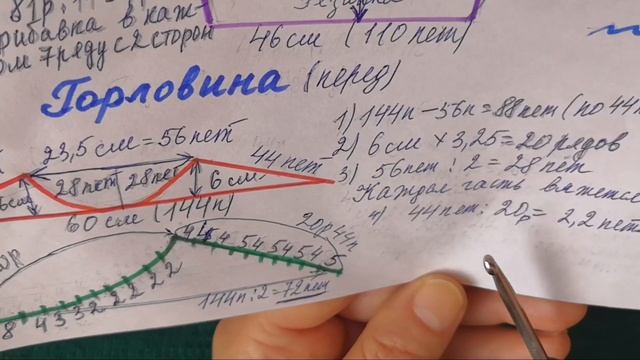 81р.
46 см (110 пет)
прибавка в каж-
ом 7 ряду с 2 сторон
Горловина (перед)
23,5 см = 56 пет
44 пет
28 пет 28 пет
6 см
60 см (144п)
1) 144п - 56п = 88 пет (по 44
2) 6 см × 3,25 = 20 рядов
3) 56 пет : 2 = 28 пет
Каждая часть вяжется
4) 44 пет : 20р = 2,2 пет
20р 44п
5 4 5 4 5 4 5 4 5
8 4 3 3 2 2 2 2 2
144п : 2 = 72 пет